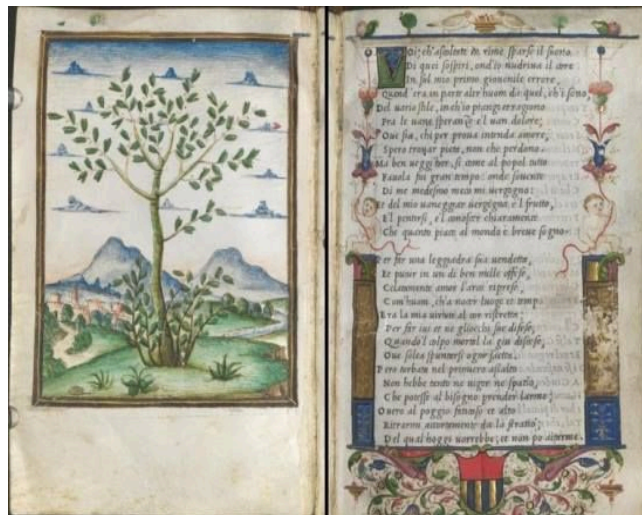 Voi, ch'ascoltate in rime sparse il suono
Di quei sospiri, ond'io nudriva il core
In sul mio primo giovenile errore,
Quand'era in parte altr'huom da quel, ch'i sono;
Del vario stile, in ch'io piango et ragiono
Fra le vane speranze e'l van dolore;
Ove sia, chi per prova intenda amore,
Spero trovar pieta, non che perdono.
Ma ben veggi'hor, si come al popol tutto
Favola fui gran tempo: onde sovente
Di me medesmo meco mi vergogno:
Et del mio vaneggiar vergogna e'l frutto,
E'l pentirsi, e'l conoscer chiaramente
Che quanto piace al mondo e breve sogno.
Per far una leggiadra sua vendetta,
Et punir in un di ben mille offese,
Celatamente amor l'arco riprese,
Com'huom, ch'a nocer luogo et tempo
Era la mia virtute al cor ristretta,
Per far ivi et ne gliocchi sue difese;
Quando'l colpo mortal la giu discese,
Ove solea spuntarsi ogni saetta.
Pero turbata nel primiero assalto
Non hebbe tanto ne vigor ne spatio,
Che potesse al bisogno prender l'arme;
Overo al poggio faticoso et alto
Ritrarmi accortamente da lo stratio,
Del qual hoggi vorrebbe, et non po aitarme.